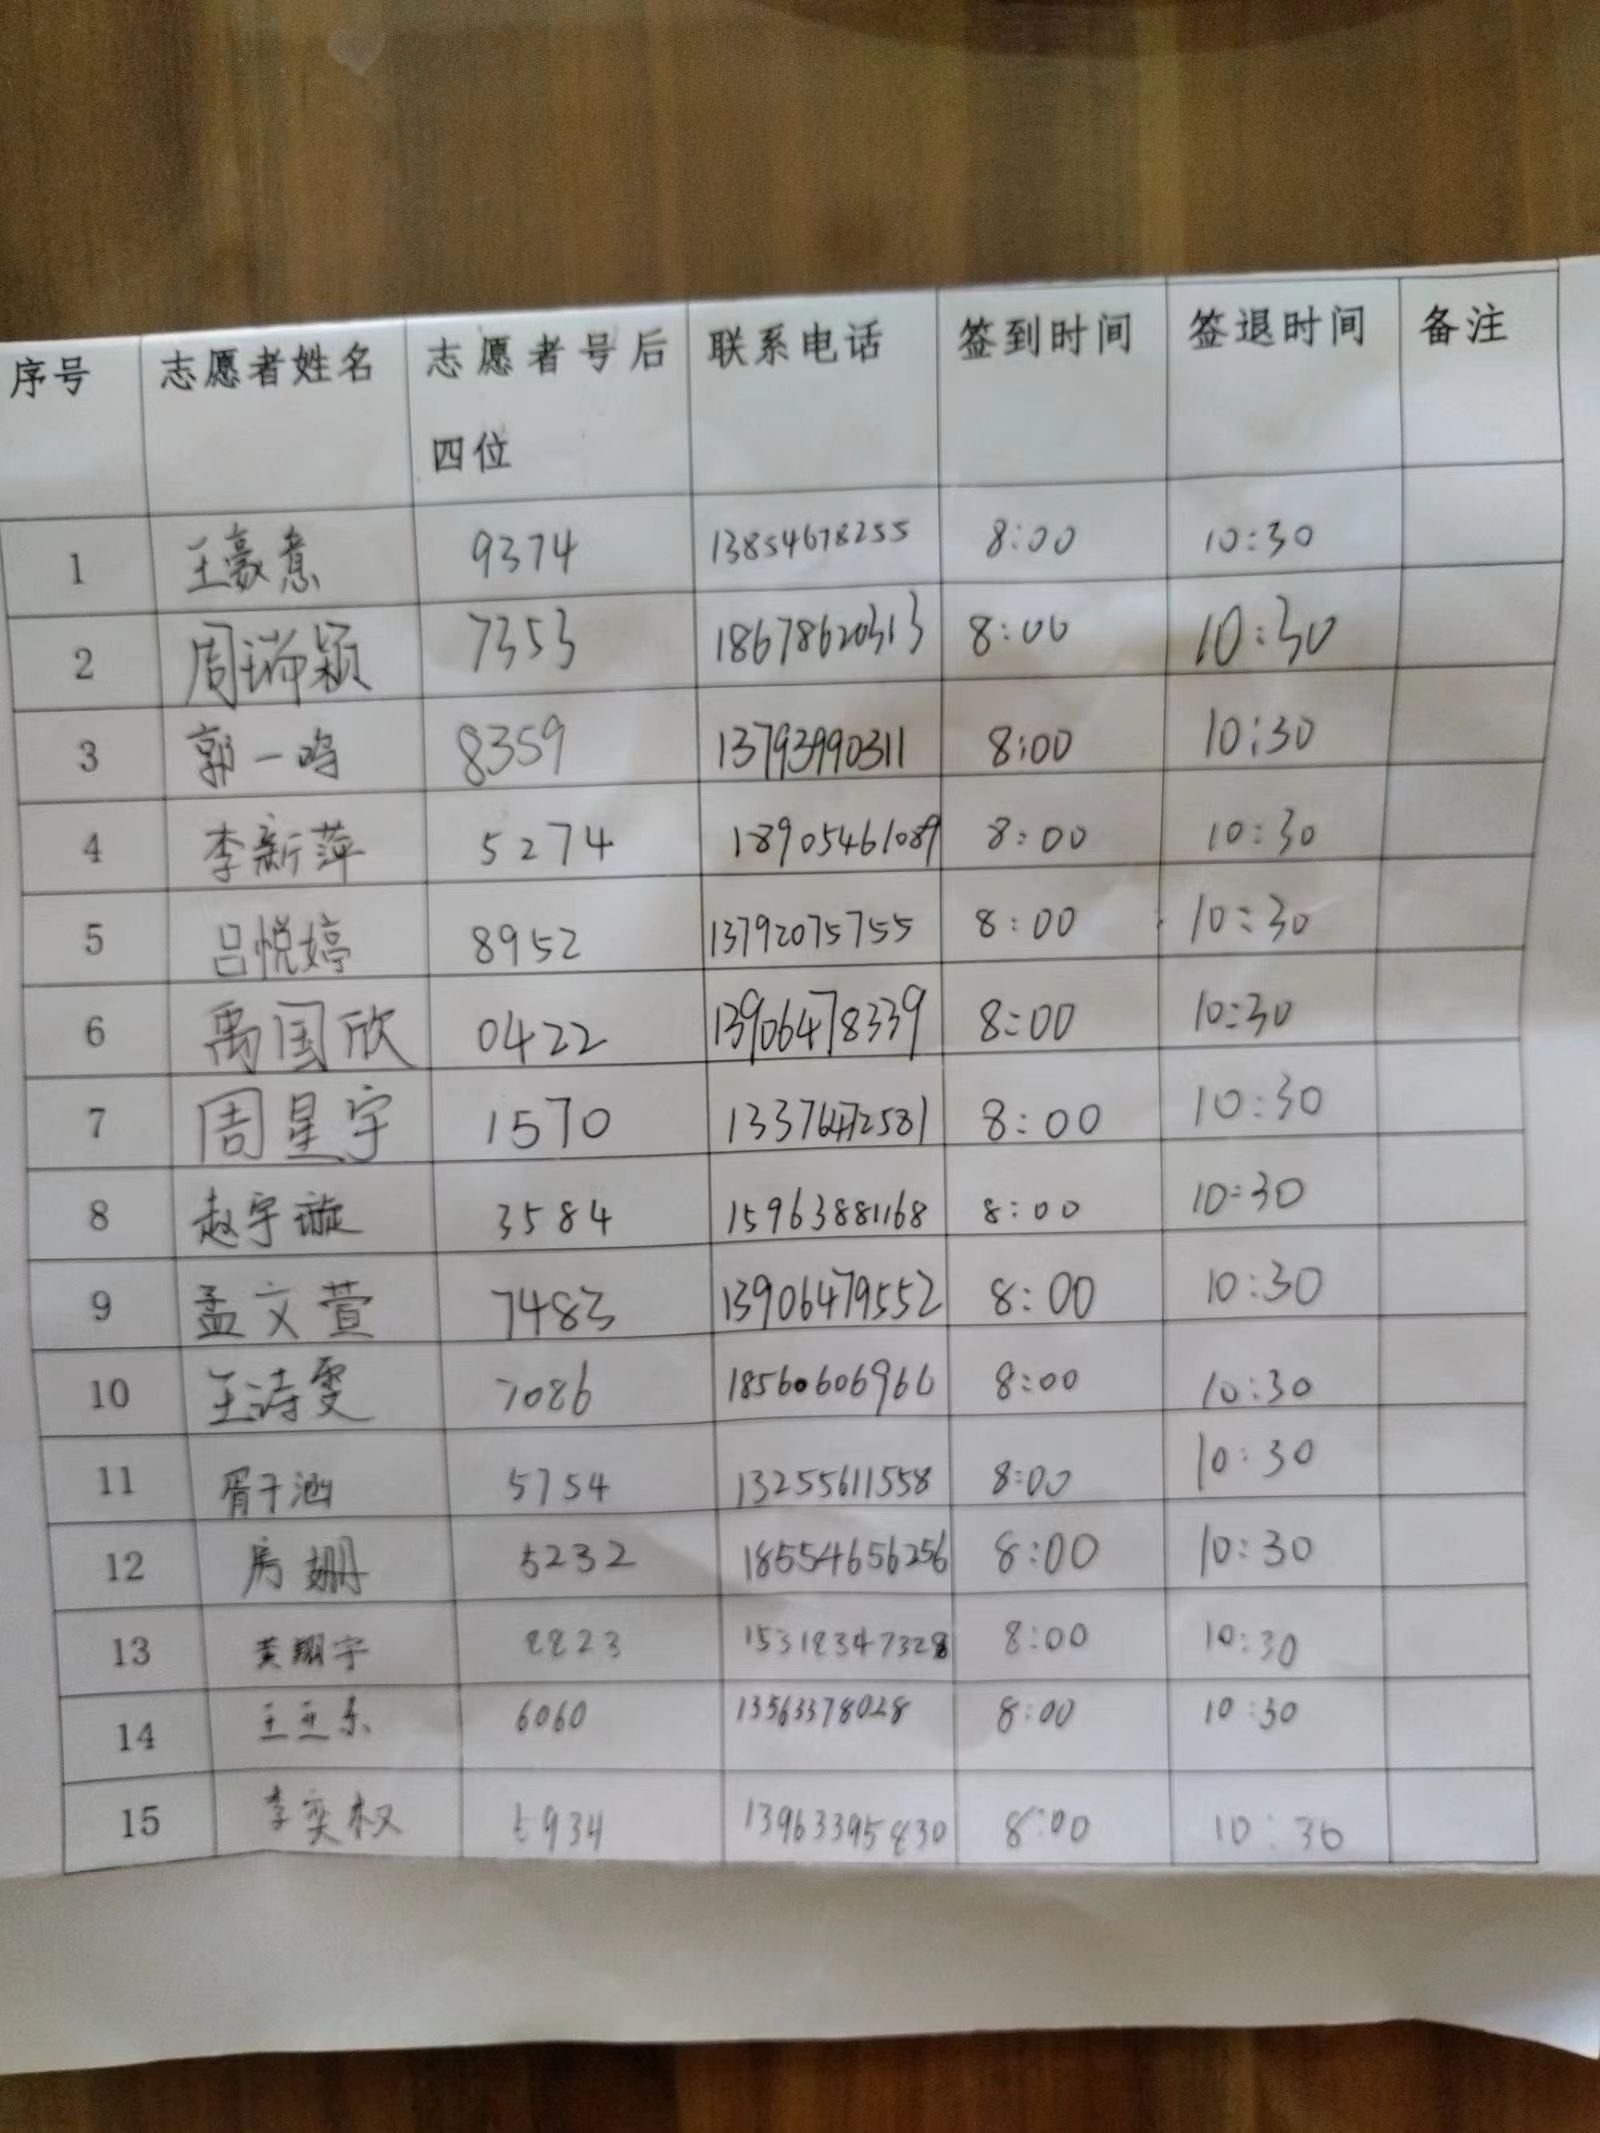 序号 志愿者姓名 志愿者号后四位 联系电话 签到时间 签退时间 备注
1 王豪意 9374 13854678255 8:00 10:30
2 周瑞颖 7353 18678620313 8:00 10:30
3 郭一鸣 8359 13793990311 8:00 10:30
4 李新萍 5274 18905461089 8:00 10:30
5 吕悦婷 8952 13792075755 8:00 10:30
6 禹国欣 0422 13906478339 8:00 10:30
7 周星宇 1570 13376472581 8:00 10:30
8 赵宇璇 3584 15963881168 8:00 10:30
9 孟文萱 7483 13906479552 8:00 10:30
10 王诗雯 7086 18560606966 8:00 10:30
11 胥子涵 5754 13255611558 8:00 10:30
12 房姗 5232 18554656256 8:00 10:30
13 黄翔宇 15318347328 8:00 10:30
14 6060 13563378028 8:00 10:30
15 李奕权 5934 13963395830 8:00 10:30